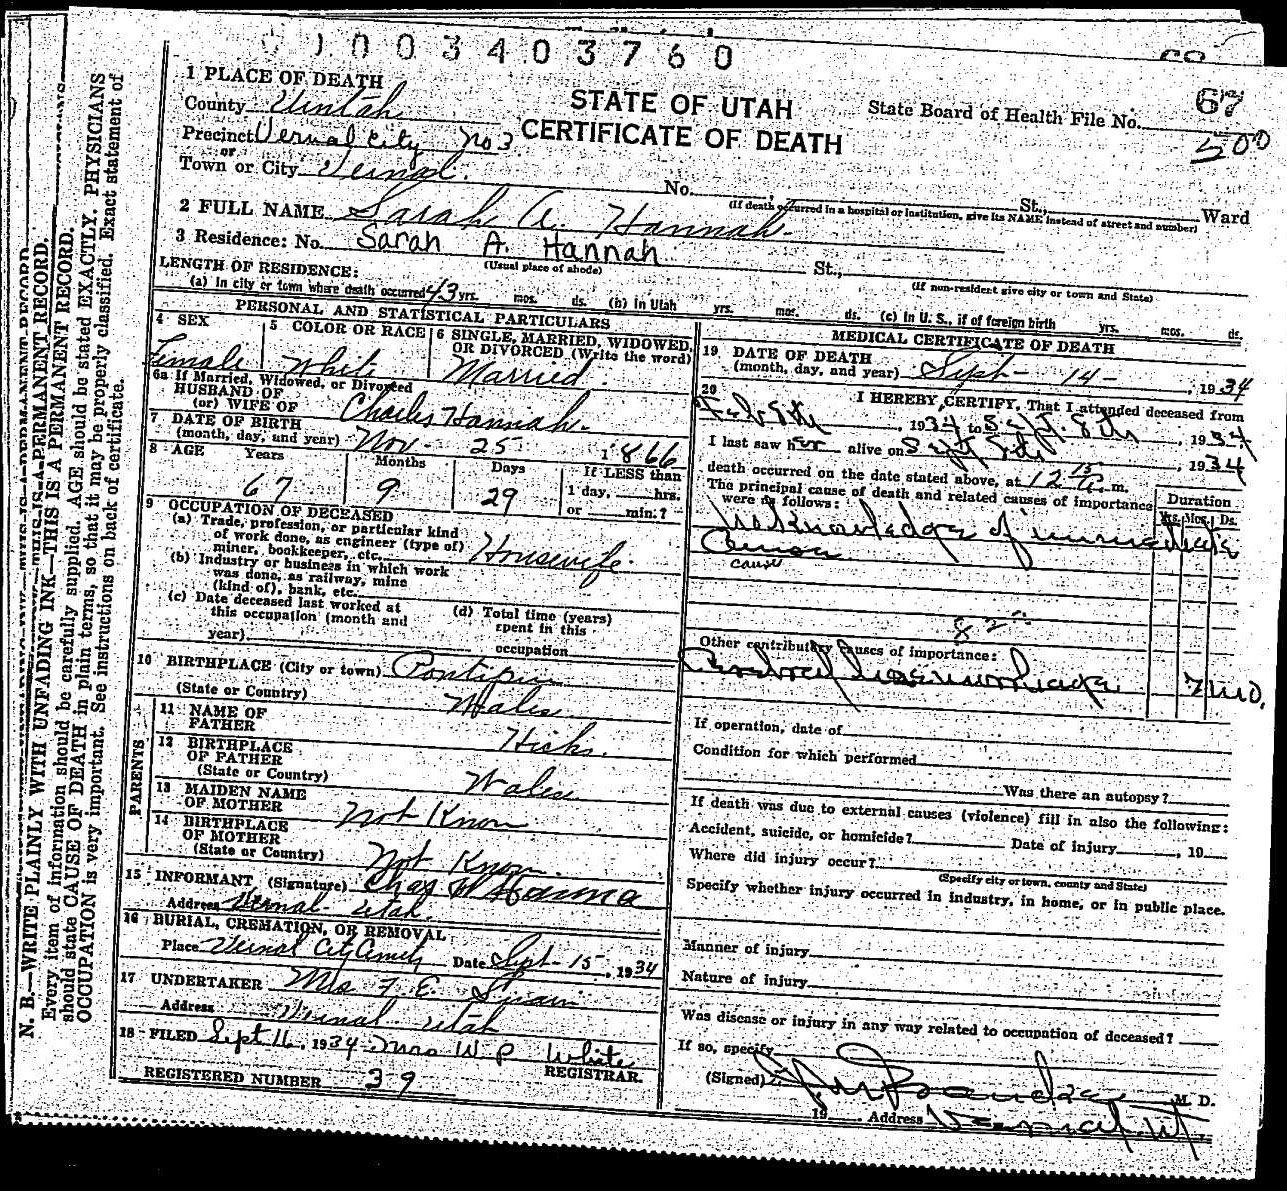 01003403760
1 PLACE OF DEATH
County Uintah
Precinct Vernal City No 3
or
Town or City Vernal.
STATE OF UTAH
CERTIFICATE OF DEATH
State Board of Health File No. 67
500
No. St., Ward
(If death occurred in a hospital or institution, give its NAME instead of street and number)
2 FULL NAME Sarah A. Hannah.
3 Residence: No. Sarah A. Hannah St.,
(Usual place of abode) (If non-resident give city or town and State)
LENGTH OF RESIDENCE:
(a) In city or town where death occurred 43 yrs. mos. ds. (b) in Utah yrs. mos. ds. (c) in U. S., if of foreign birth yrs. mos. ds.
PERSONAL AND STATISTICAL PARTICULARS
4 SEX
Female
5 COLOR OR RACE
White
6 SINGLE, MARRIED, WIDOWED, OR DIVORCED (Write the word)
Married.
6a If Married, Widowed, or Divorced
HUSBAND OF
(or) WIFE OF Charles Hannah.
7 DATE OF BIRTH
(month, day, and year) Nov. 25 1866
8 AGE Years Months Days If LESS than
67 9 29 1 day, hrs.
or min.?
9 OCCUPATION OF DECEASED
(a) Trade, profession, or particular kind
of work done, as engineer (type of)
miner, bookkeeper, etc. Housewife.
(b) Industry or business in which work
was done, as railway, mine
(kind of), bank, etc.
(c) Date deceased last worked at
this occupation (month and
year)
(d) Total time (years)
spent in this
occupation
10 BIRTHPLACE (City or town)
(State or Country) Wales.
PARENTS
11 NAME OF
FATHER Hicks.
12 BIRTHPLACE
OF FATHER
(State or Country) Wales.
13 MAIDEN NAME
OF MOTHER Not Known
14 BIRTHPLACE
OF MOTHER
(State or Country) Not Known.
15 INFORMANT (Signature) Chas
Address Vernal Utah.
16 BURIAL, CREMATION, OR REMOVAL
Place Vernal City Date Sept 15, 1934
17 UNDERTAKER Mrs F. E. Swain
Address Vernal Utah
18 FILED Sept 16, 1934 Mrs W P White
REGISTRAR.
REGISTERED NUMBER 39
MEDICAL CERTIFICATE OF DEATH
19 DATE OF DEATH
(month, day, and year) Sept - 14 - , 1934
20 I HEREBY CERTIFY, That I attended deceased from
Feb 8th, 1934 to Sept. 8th, 1934
I last saw her alive on Sept 8th, 1934
death occurred on the date stated above, at 12 15 a. m.
The principal cause of death and related causes of importance
were as follows:
Duration
Yrs. Mos. Ds.
No Knowledge of immediate
Cause
cause
82a
Other contributory causes of importance:
Cerebral hemorrhage 7 mo.
If operation, date of
Condition for which performed
Was there an autopsy?
If death was due to external causes (violence) fill in also the following:
Accident, suicide, or homicide? Date of injury , 19
Where did injury occur?
(Specify city or town, county and State)
Specify whether injury occurred in industry, in home, or in public place.
Manner of injury
Nature of injury
Was disease or injury in any way related to occupation of deceased?
If so, specify
(Signed) M. D.
19 Address Vernal, Ut.
N. B.—WRITE PLAINLY WITH UNFADING INK—THIS IS A PERMANENT RECORD.
Every item of information should be carefully supplied. AGE should be stated EXACTLY. PHYSICIANS
should state CAUSE OF DEATH in plain terms, so that it may be properly classified. Exact statement of
OCCUPATION is very important. See instructions on back of certificate.